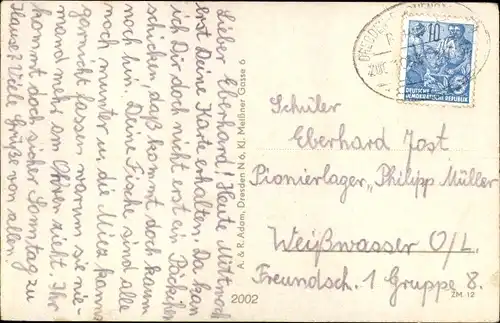 Lieber Eberhard! Heute Mittwoch
erst Deine Karte erhalten. Da kan
ich Dir doch nicht erst ein Päckchen
schicken, daß kommt doch kaum
noch hin. Deine Fische sind alle
noch munter u. die Miez kanns
garnicht fassen warum sie nie-
mand mehr am Ohren zieht. Ihr
kommt doch sicher Sonntag zu
Hause? Viele Grüße von allen.
A. & R. Adam, Dresden N 6, Kl. Meißner Gasse 6
2002
DRESDEN
10
DEUTSCHE
DEMOKRATISCHE REPUBLIK
Schüler
Eberhard Jost
Pionierlager „Philipp Müller
Weißwasser O/L.
Freundsch. 1 Gruppe 8.
ZM 12